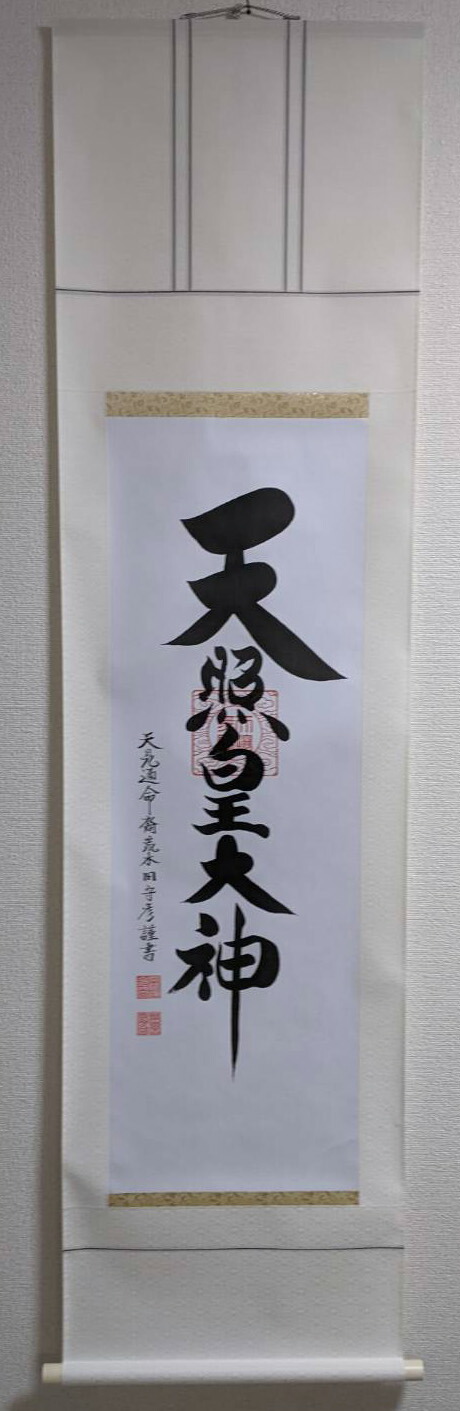 天照皇大神
天見通命裔荒木田守彦謹書